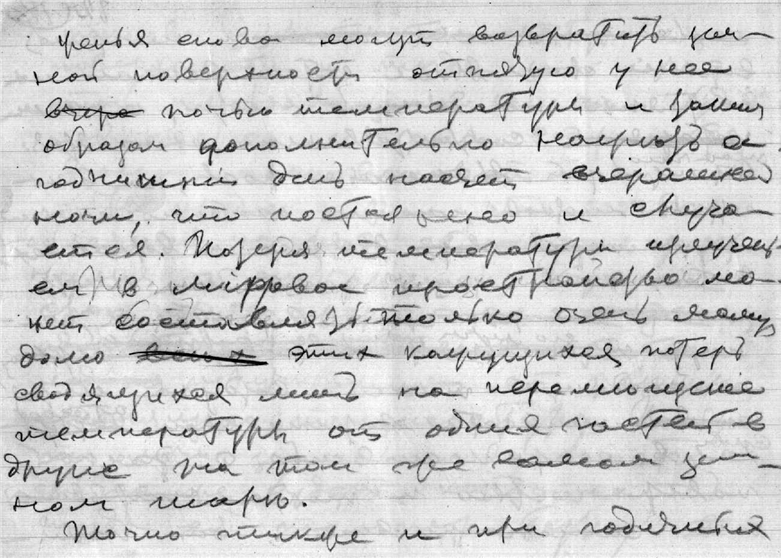 снова могут возвратить зем-
ной поверхности отнятую у нее
вчера ночью температуру и таким
образом дополнительно нагреть
день насчет вчерашней
ночи, что постоянно и случа-
ется. Потеря температуры
в мировое пространство мо-
жет составлять только очень малую
долю этих кажущихся потерь
сводящихся лишь на перемещение
температуры от одних частей в
другие на том же самом зем-
ном шаре.
Точно также и при